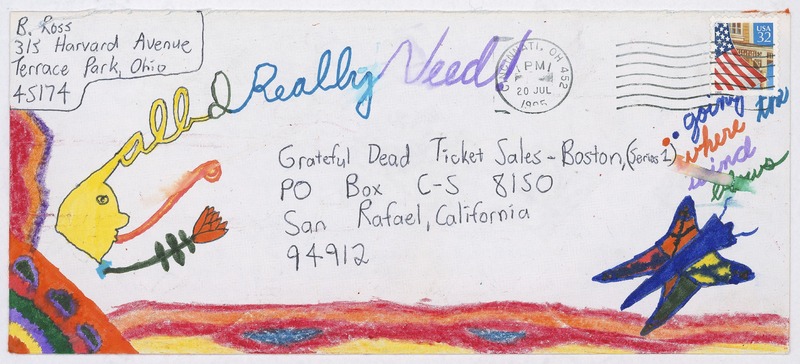 B. Ross
315 Harvard Avenue
Terrace Park, Ohio
45174
all I Really Need!
CINCINNATI, OH 452
PM
20 JUL
1995
USA
32
going
where the
wind
blows
Grateful Dead Ticket Sales - Boston, (Series 1)
PO Box C-S 8150
San Rafael, California
94912